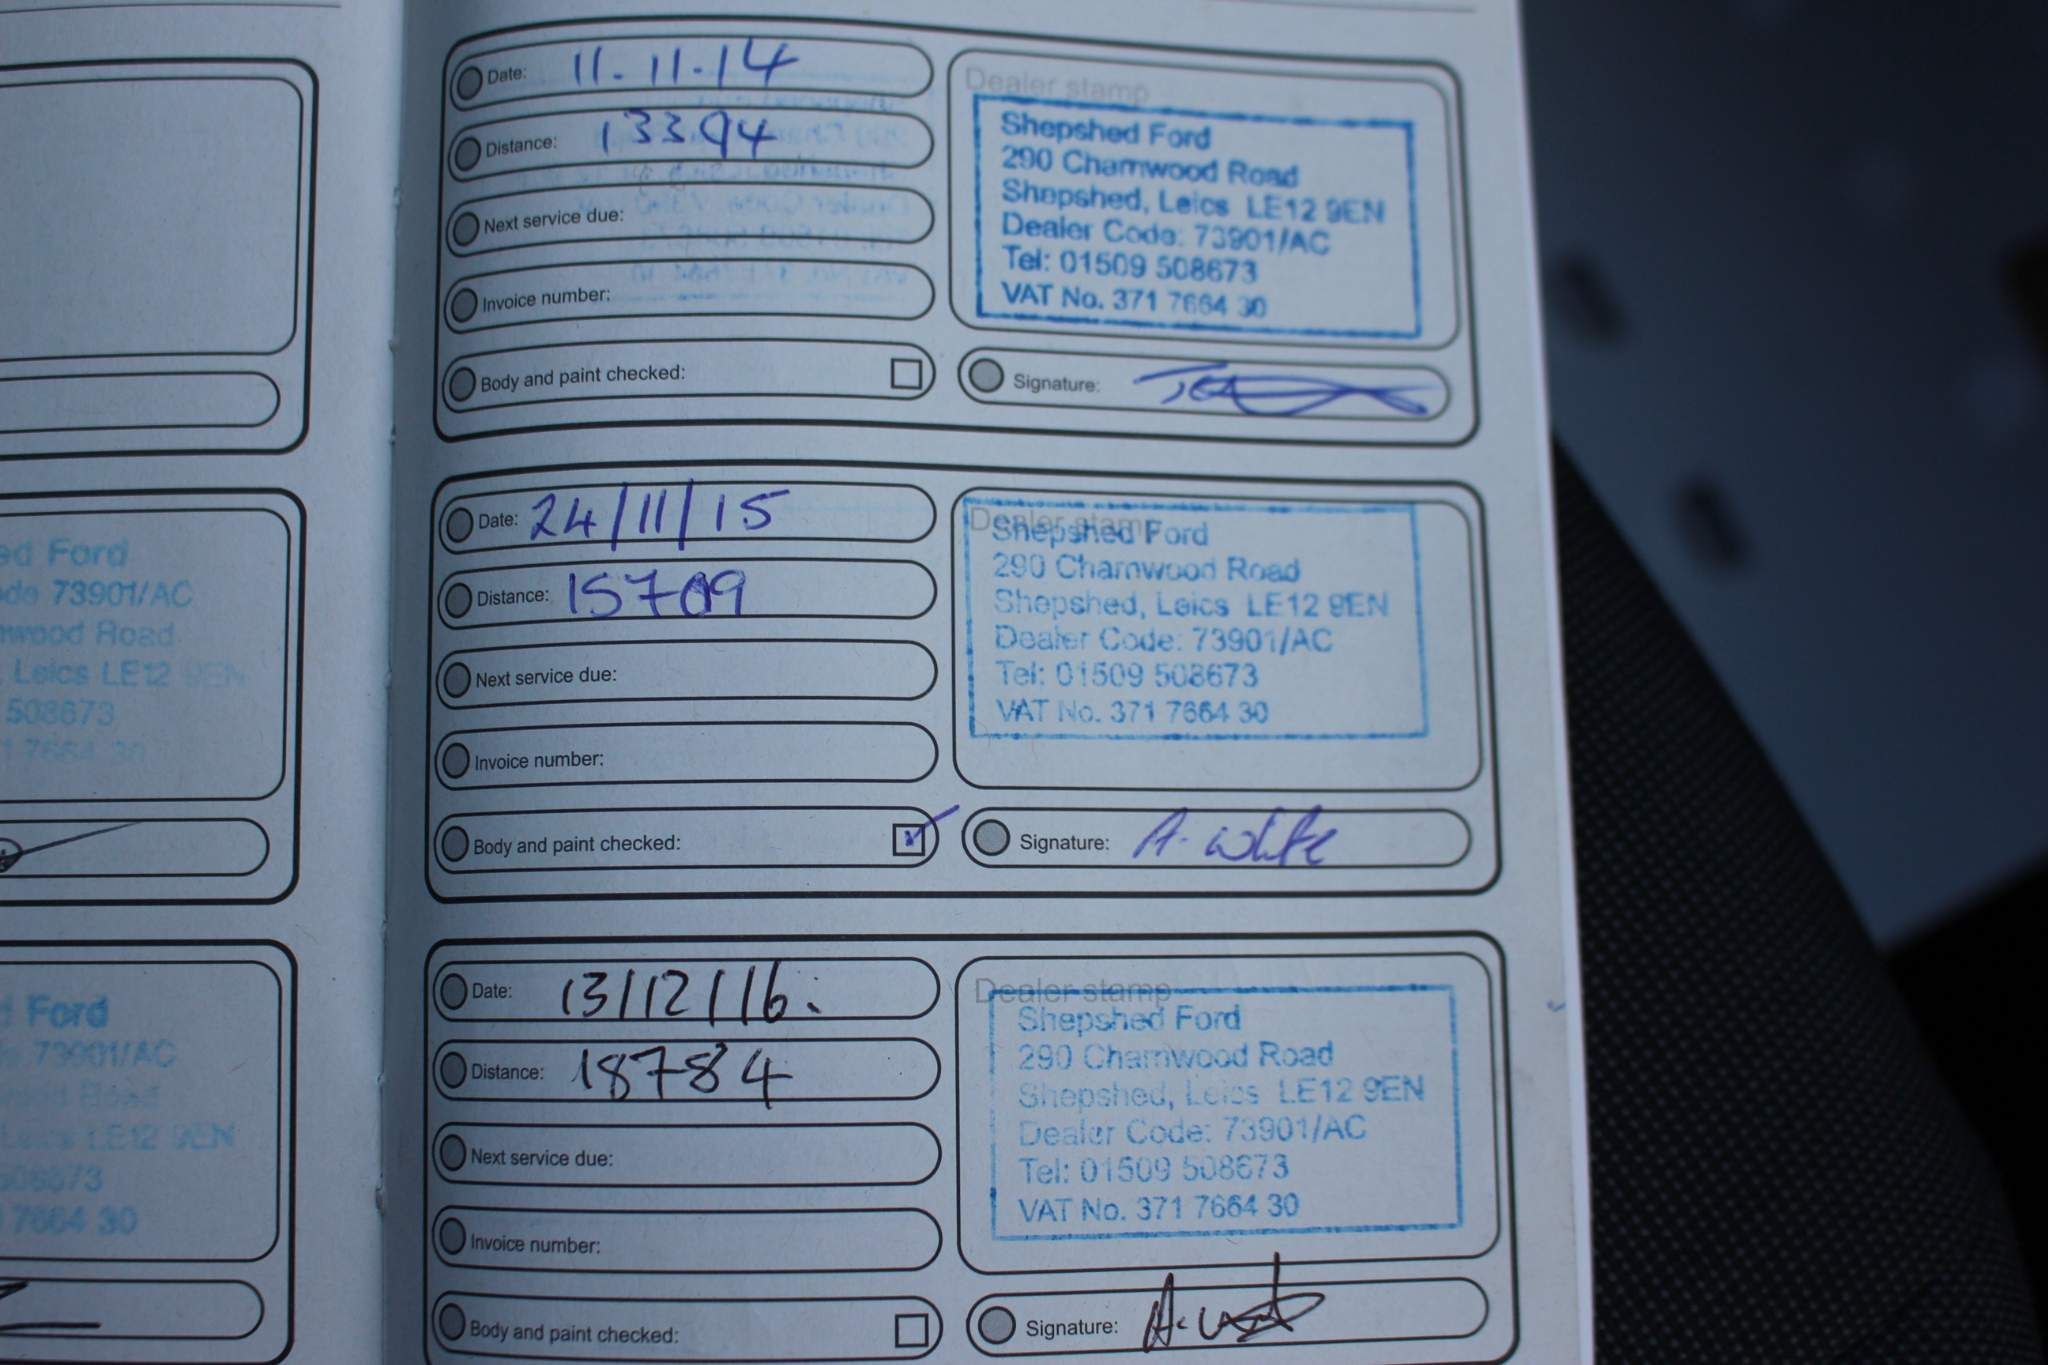 ed Ford
ode 73901/AC
nwood Road
Leics LE12 9EN
508673
1 7664 30
Ford
73901/AC
Road
Leics LE12 9EN
508673
7664 30
Date: 11.11.14
Distance: 13394
Next service due:
Invoice number:
Body and paint checked:
Dealer stamp
Shepshed Ford
290 Charnwood Road
Shepshed, Leics LE12 9EN
Dealer Code: 73901/AC
Tel: 01509 508673
VAT No. 371 7664 30
Signature:
Date: 24/11/15
Distance: 15709
Next service due:
Invoice number:
Body and paint checked:
Dealer stamp
Shepshed Ford
290 Charnwood Road
Shepshed, Leics LE12 9EN
Dealer Code: 73901/AC
Tel: 01509 508673
VAT No. 371 7664 30
Signature: A. White
Date: 13/12/16.
Distance: 18784
Next service due:
Invoice number:
Body and paint checked:
Dealer stamp
Shepshed Ford
290 Charnwood Road
Shepshed, Leics LE12 9EN
Dealer Code: 73901/AC
Tel: 01509 508673
VAT No. 371 7664 30
Signature: